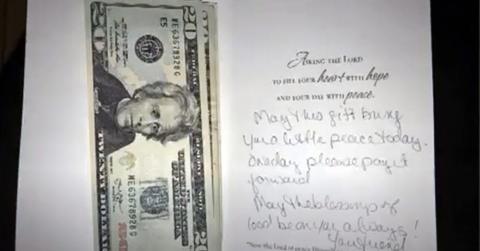 20
20
ME 63678928 G
E5
THE UNITED STATES OF AMERICA
TWENTY DOLLARS
ME 63678928 G
20
ASKING THE LORD
TO FILL YOUR heart WITH hope
AND YOUR DAY WITH peace.
May this gift bring
you a little peace today.
One day please pay it
forward
May the blessings of
God be on you always!
your friend
"Now the Lord of peace